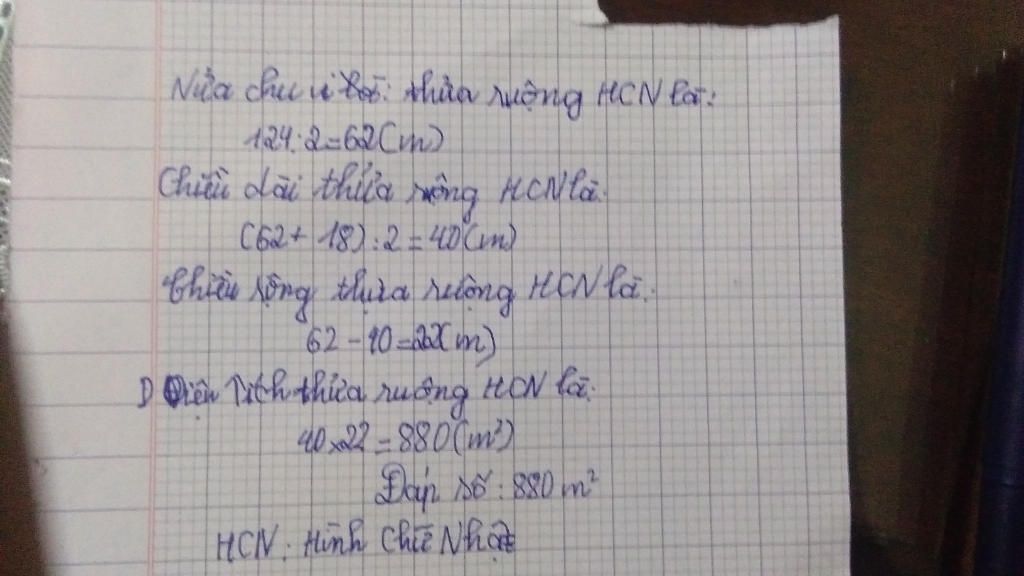 Nửa chu vi thửa ruộng HCN là:
124:2=62(m)
Chiều dài thửa ruộng HCN là.
(62+18):2=40(m)
Chiều rộng thửa ruộng HCN là.
62-40=22(m)
Diện Tích thửa ruộng HCN là.
40x22=880(m²)
Đáp số: 880 m²
HCN: Hình Chữ Nhật